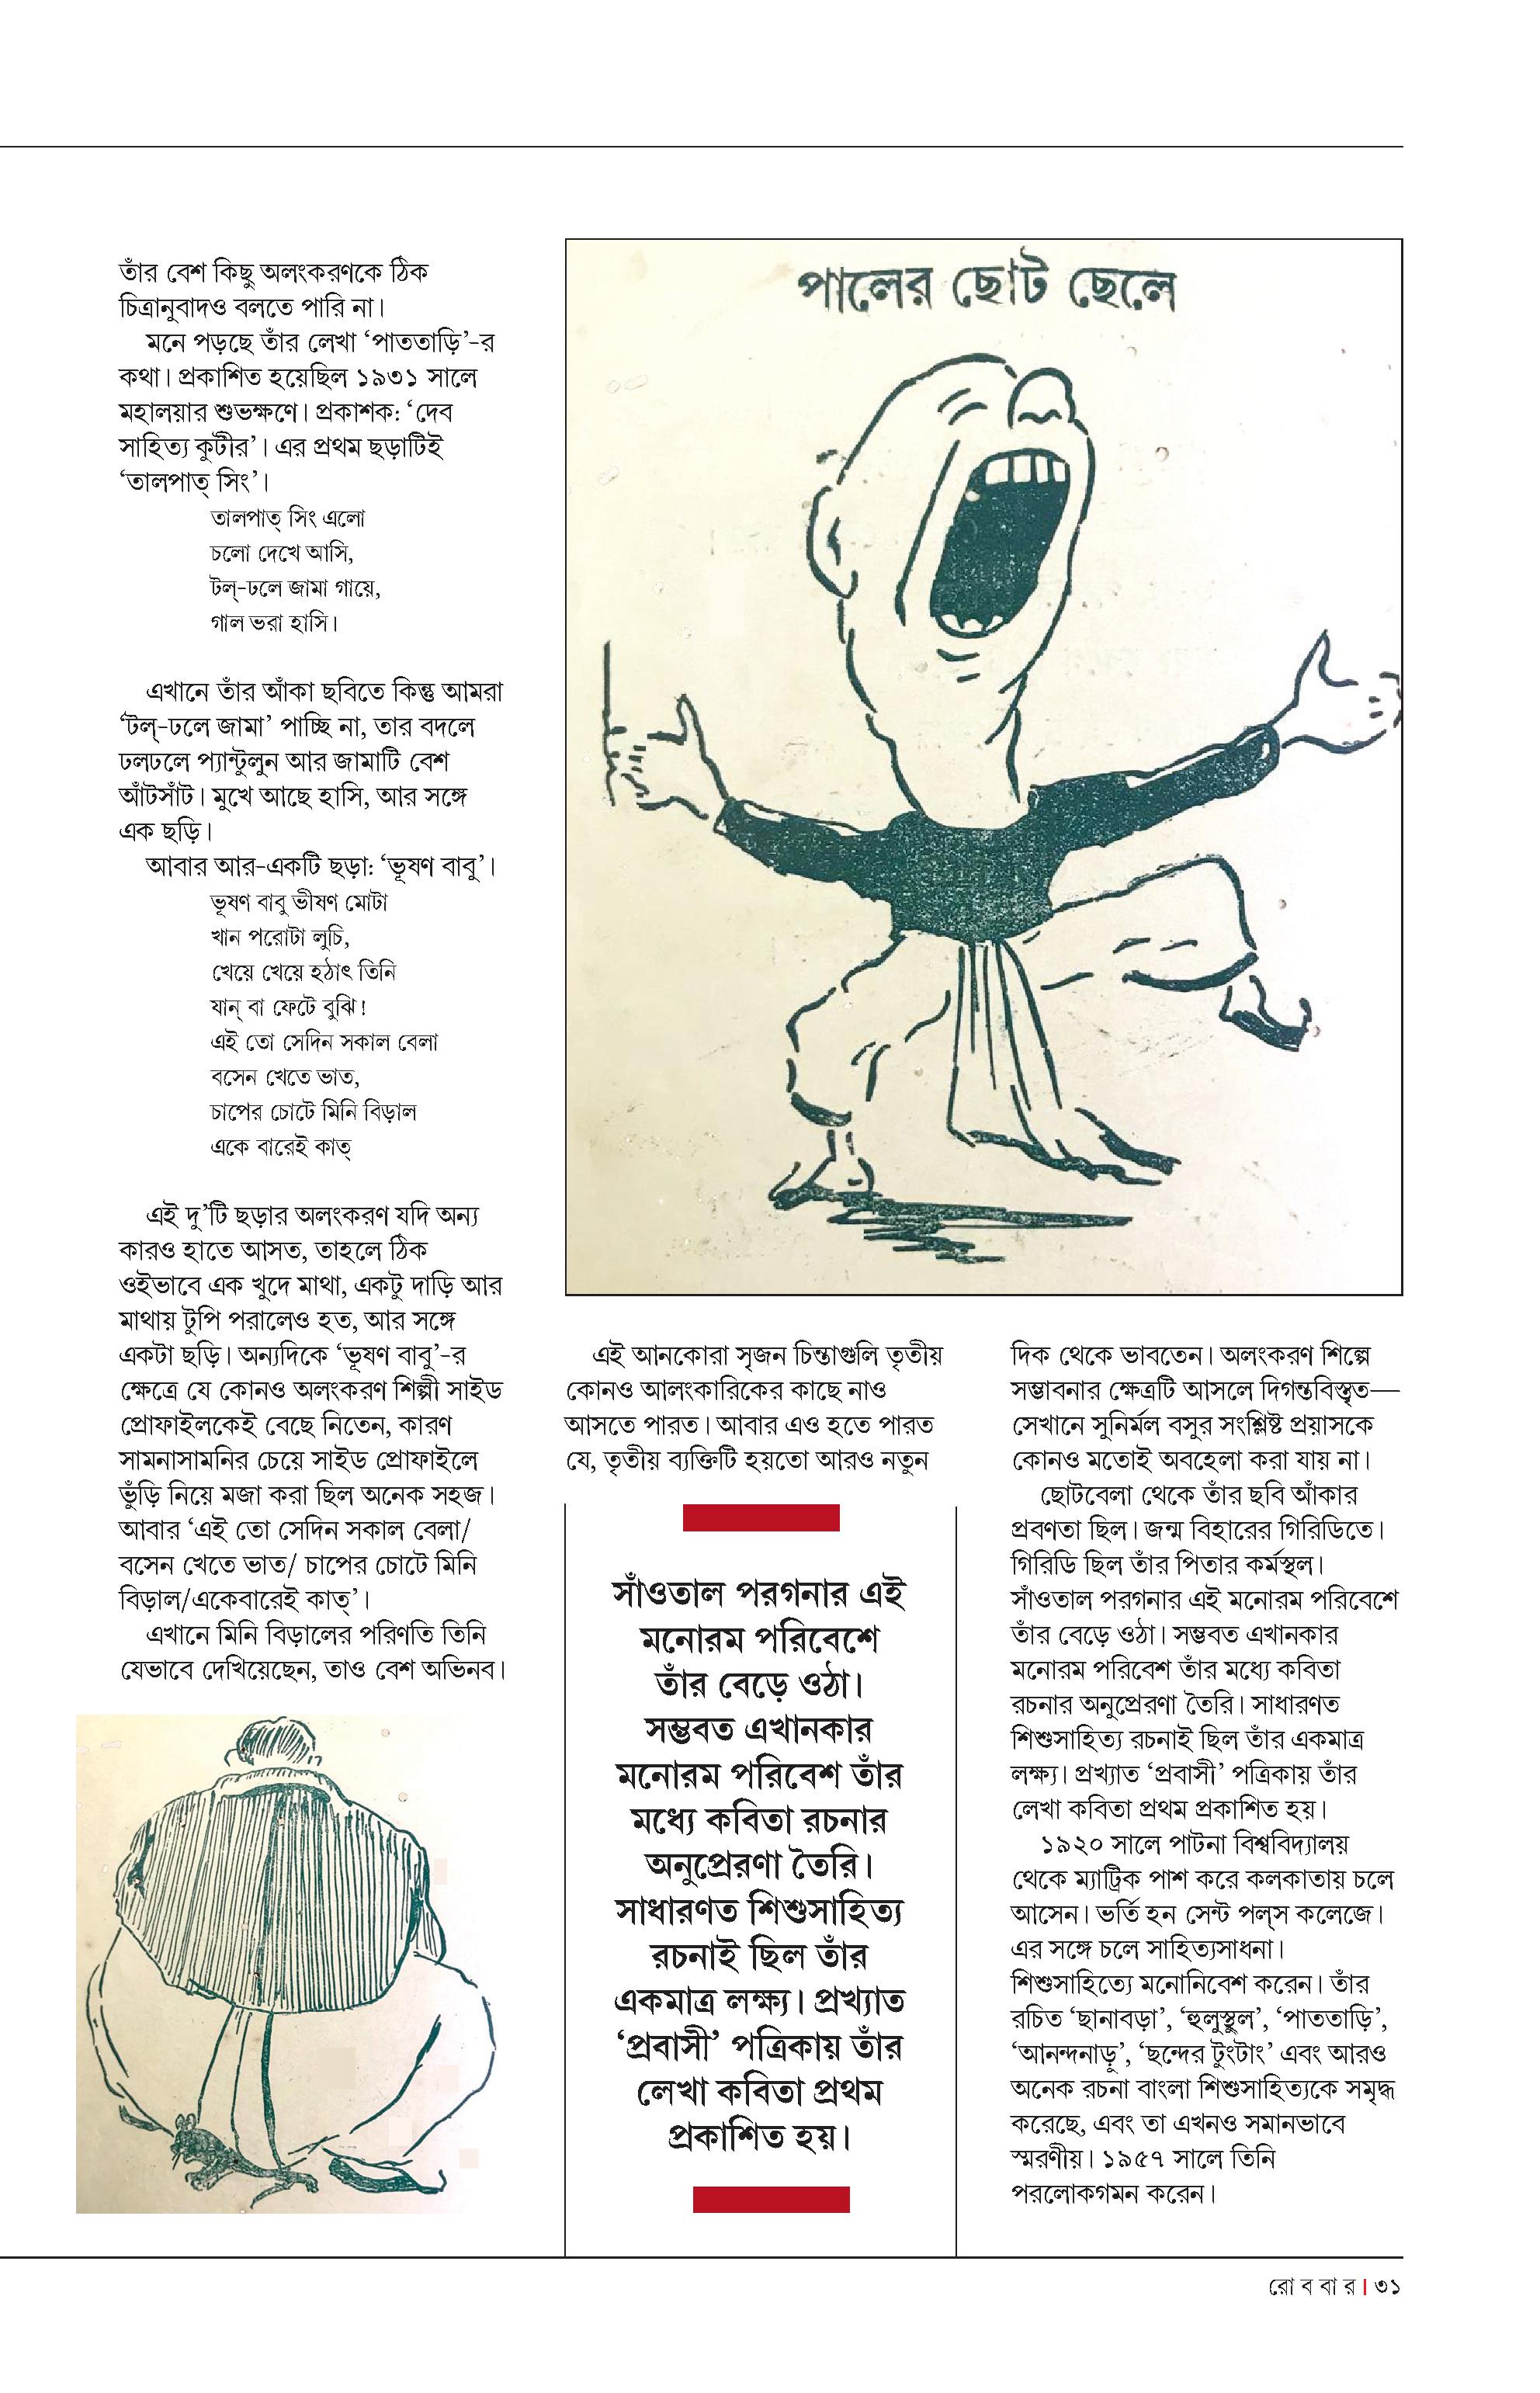 তাঁর বেশ কিছু অলংকরণকে ঠিক
চিত্রানুবাদও বলতে পারি না।
মনে পড়ছে তাঁর লেখা ‘পাততাড়ি’-র
কথা। প্রকাশিত হয়েছিল ১৯৩১ সালে
মহালয়ার শুভক্ষণে। প্রকাশক: ‘দেব
সাহিত্য কুটীর’। এর প্রথম ছড়াটিই
‘তালপাত্ সিং’।
তালপাত্ সিং এলো
চলো দেখে আসি,
টল্-ঢলে জামা গায়ে,
গাল ভরা হাসি।
এখানে তাঁর আঁকা ছবিতে কিন্তু আমরা
‘টল্-ঢলে জামা’ পাচ্ছি না, তার বদলে
ঢলঢলে প্যান্টুলুন আর জামাটি বেশ
আঁটসাঁট। মুখে আছে হাসি, আর সঙ্গে
এক ছড়ি।
আবার আর-একটি ছড়া: ‘ভূষণ বাবু’।
ভূষণ বাবু ভীষণ মোটা
খান পরোটা লুচি,
খেয়ে খেয়ে হঠাৎ তিনি
যান্ বা ফেটে বুঝি!
এই তো সেদিন সকাল বেলা
বসেন খেতে ভাত,
চাপের চোটে মিনি বিড়াল
একে বারেই কাত্
এই দু’টি ছড়ার অলংকরণ যদি অন্য
কারও হাতে আসত, তাহলে ঠিক
ওইভাবে এক খুদে মাথা, একটু দাড়ি আর
মাথায় টুপি পরালেও হত, আর সঙ্গে
একটা ছড়ি। অন্যদিকে ‘ভূষণ বাবু’-র
ক্ষেত্রে যে কোনও অলংকরণ শিল্পী সাইড
প্রোফাইলকেই বেছে নিতেন, কারণ
সামনাসামনির চেয়ে সাইড প্রোফাইলে
ভুঁড়ি নিয়ে মজা করা ছিল অনেক সহজ।
আবার ‘এই তো সেদিন সকাল বেলা/
বসেন খেতে ভাত/ চাপের চোটে মিনি
বিড়াল/একেবারেই কাত্’।
এখানে মিনি বিড়ালের পরিণতি তিনি
যেভাবে দেখিয়েছেন, তাও বেশ অভিনব।
পালের ছোট ছেলে
এই আনকোরা সৃজন চিন্তাগুলি তৃতীয়
কোনও আলংকারিকের কাছে নাও
আসতে পারত। আবার এও হতে পারত
যে, তৃতীয় ব্যক্তিটি হয়তো আরও নতুন
সাঁওতাল পরগনার এই
মনোরম পরিবেশে
তাঁর বেড়ে ওঠা।
সম্ভবত এখানকার
মনোরম পরিবেশ তাঁর
মধ্যে কবিতা রচনার
অনুপ্রেরণা তৈরি।
সাধারণত শিশুসাহিত্য
রচনাই ছিল তাঁর
একমাত্র লক্ষ্য। প্রখ্যাত
‘প্রবাসী’ পত্রিকায় তাঁর
লেখা কবিতা প্রথম
প্রকাশিত হয়।
দিক থেকে ভাবতেন। অলংকরণ শিল্পে
সম্ভাবনার ক্ষেত্রটি আসলে দিগন্তবিস্তৃত—
সেখানে সুনির্মল বসুর সংশ্লিষ্ট প্রয়াসকে
কোনও মতোই অবহেলা করা যায় না।
ছোটবেলা থেকে তাঁর ছবি আঁকার
প্রবণতা ছিল। জন্ম বিহারের গিরিডিতে।
গিরিডি ছিল তাঁর পিতার কর্মস্থল।
সাঁওতাল পরগনার এই মনোরম পরিবেশে
তাঁর বেড়ে ওঠা। সম্ভবত এখানকার
মনোরম পরিবেশ তাঁর মধ্যে কবিতা
রচনার অনুপ্রেরণা তৈরি। সাধারণত
শিশুসাহিত্য রচনাই ছিল তাঁর একমাত্র
লক্ষ্য। প্রখ্যাত ‘প্রবাসী’ পত্রিকায় তাঁর
লেখা কবিতা প্রথম প্রকাশিত হয়।
১৯২০ সালে পাটনা বিশ্ববিদ্যালয়
থেকে ম্যাট্রিক পাশ করে কলকাতায় চলে
আসেন। ভর্তি হন সেন্ট পল্‌স কলেজে।
এর সঙ্গে চলে সাহিত্যসাধনা।
শিশুসাহিত্যে মনোনিবেশ করেন। তাঁর
রচিত ‘ছানাবড়া’, ‘হুলুস্থুল’, ‘পাততাড়ি’,
‘আনন্দনাড়ু’, ‘ছন্দের টুংটাং’ এবং আরও
অনেক রচনা বাংলা শিশুসাহিত্যকে সমৃদ্ধ
করেছে, এবং তা এখনও সমানভাবে
স্মরণীয়। ১৯৫৭ সালে তিনি
পরলোকগমন করেন।
রো ব বা র । ৩১